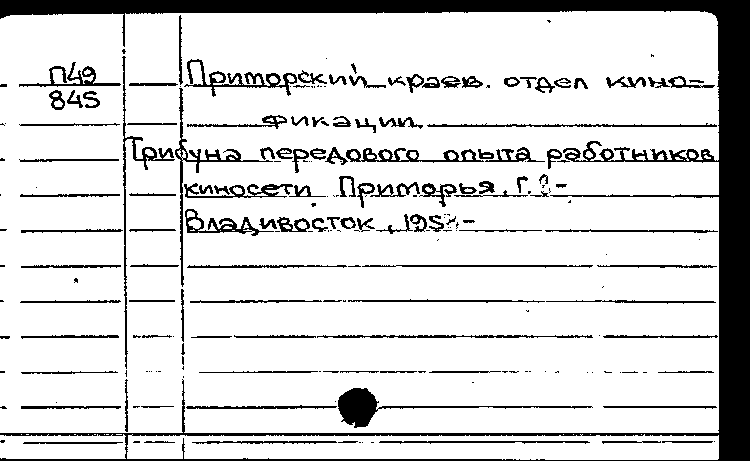 П49
845
Приморский краев. отдел кино=
фикации.
Трибуна передового опыта работников
киносети Приморья. Г.
Владивосток,